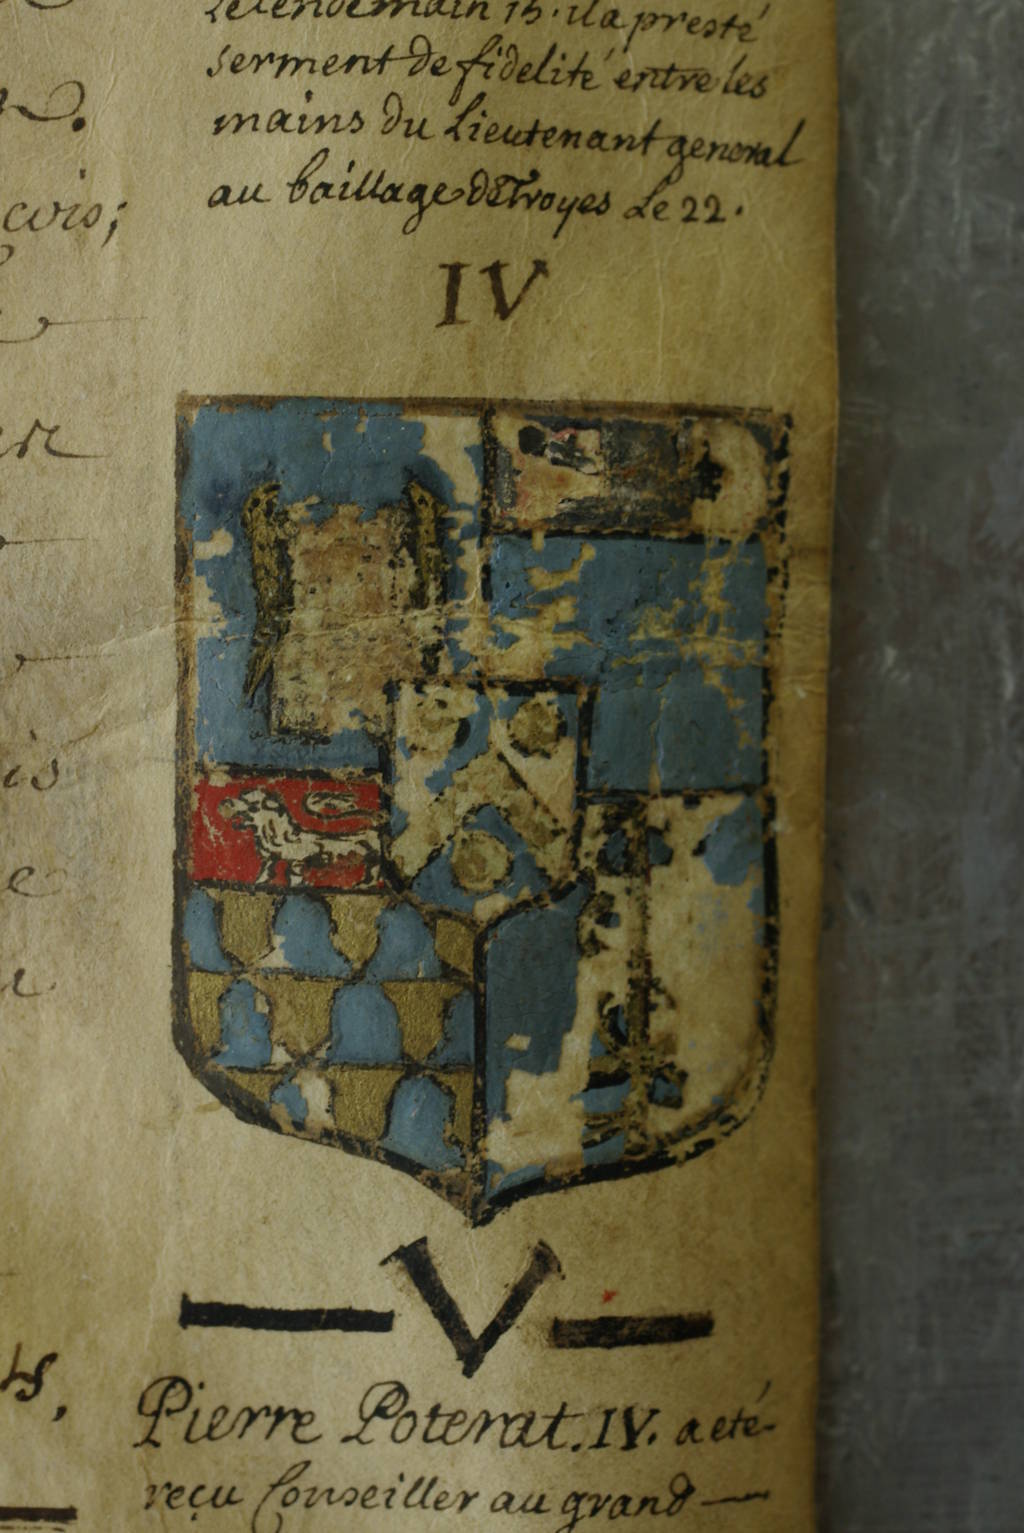 Le lendemain 15. il a presté
serment de fidelité entre les
n.
mains du Lieutenant general
çois;
au baillage de Troyes Le 22.
IV
er
is
e
V
Pierre Poterat. IV. a eté
reçu Conseiller au grand